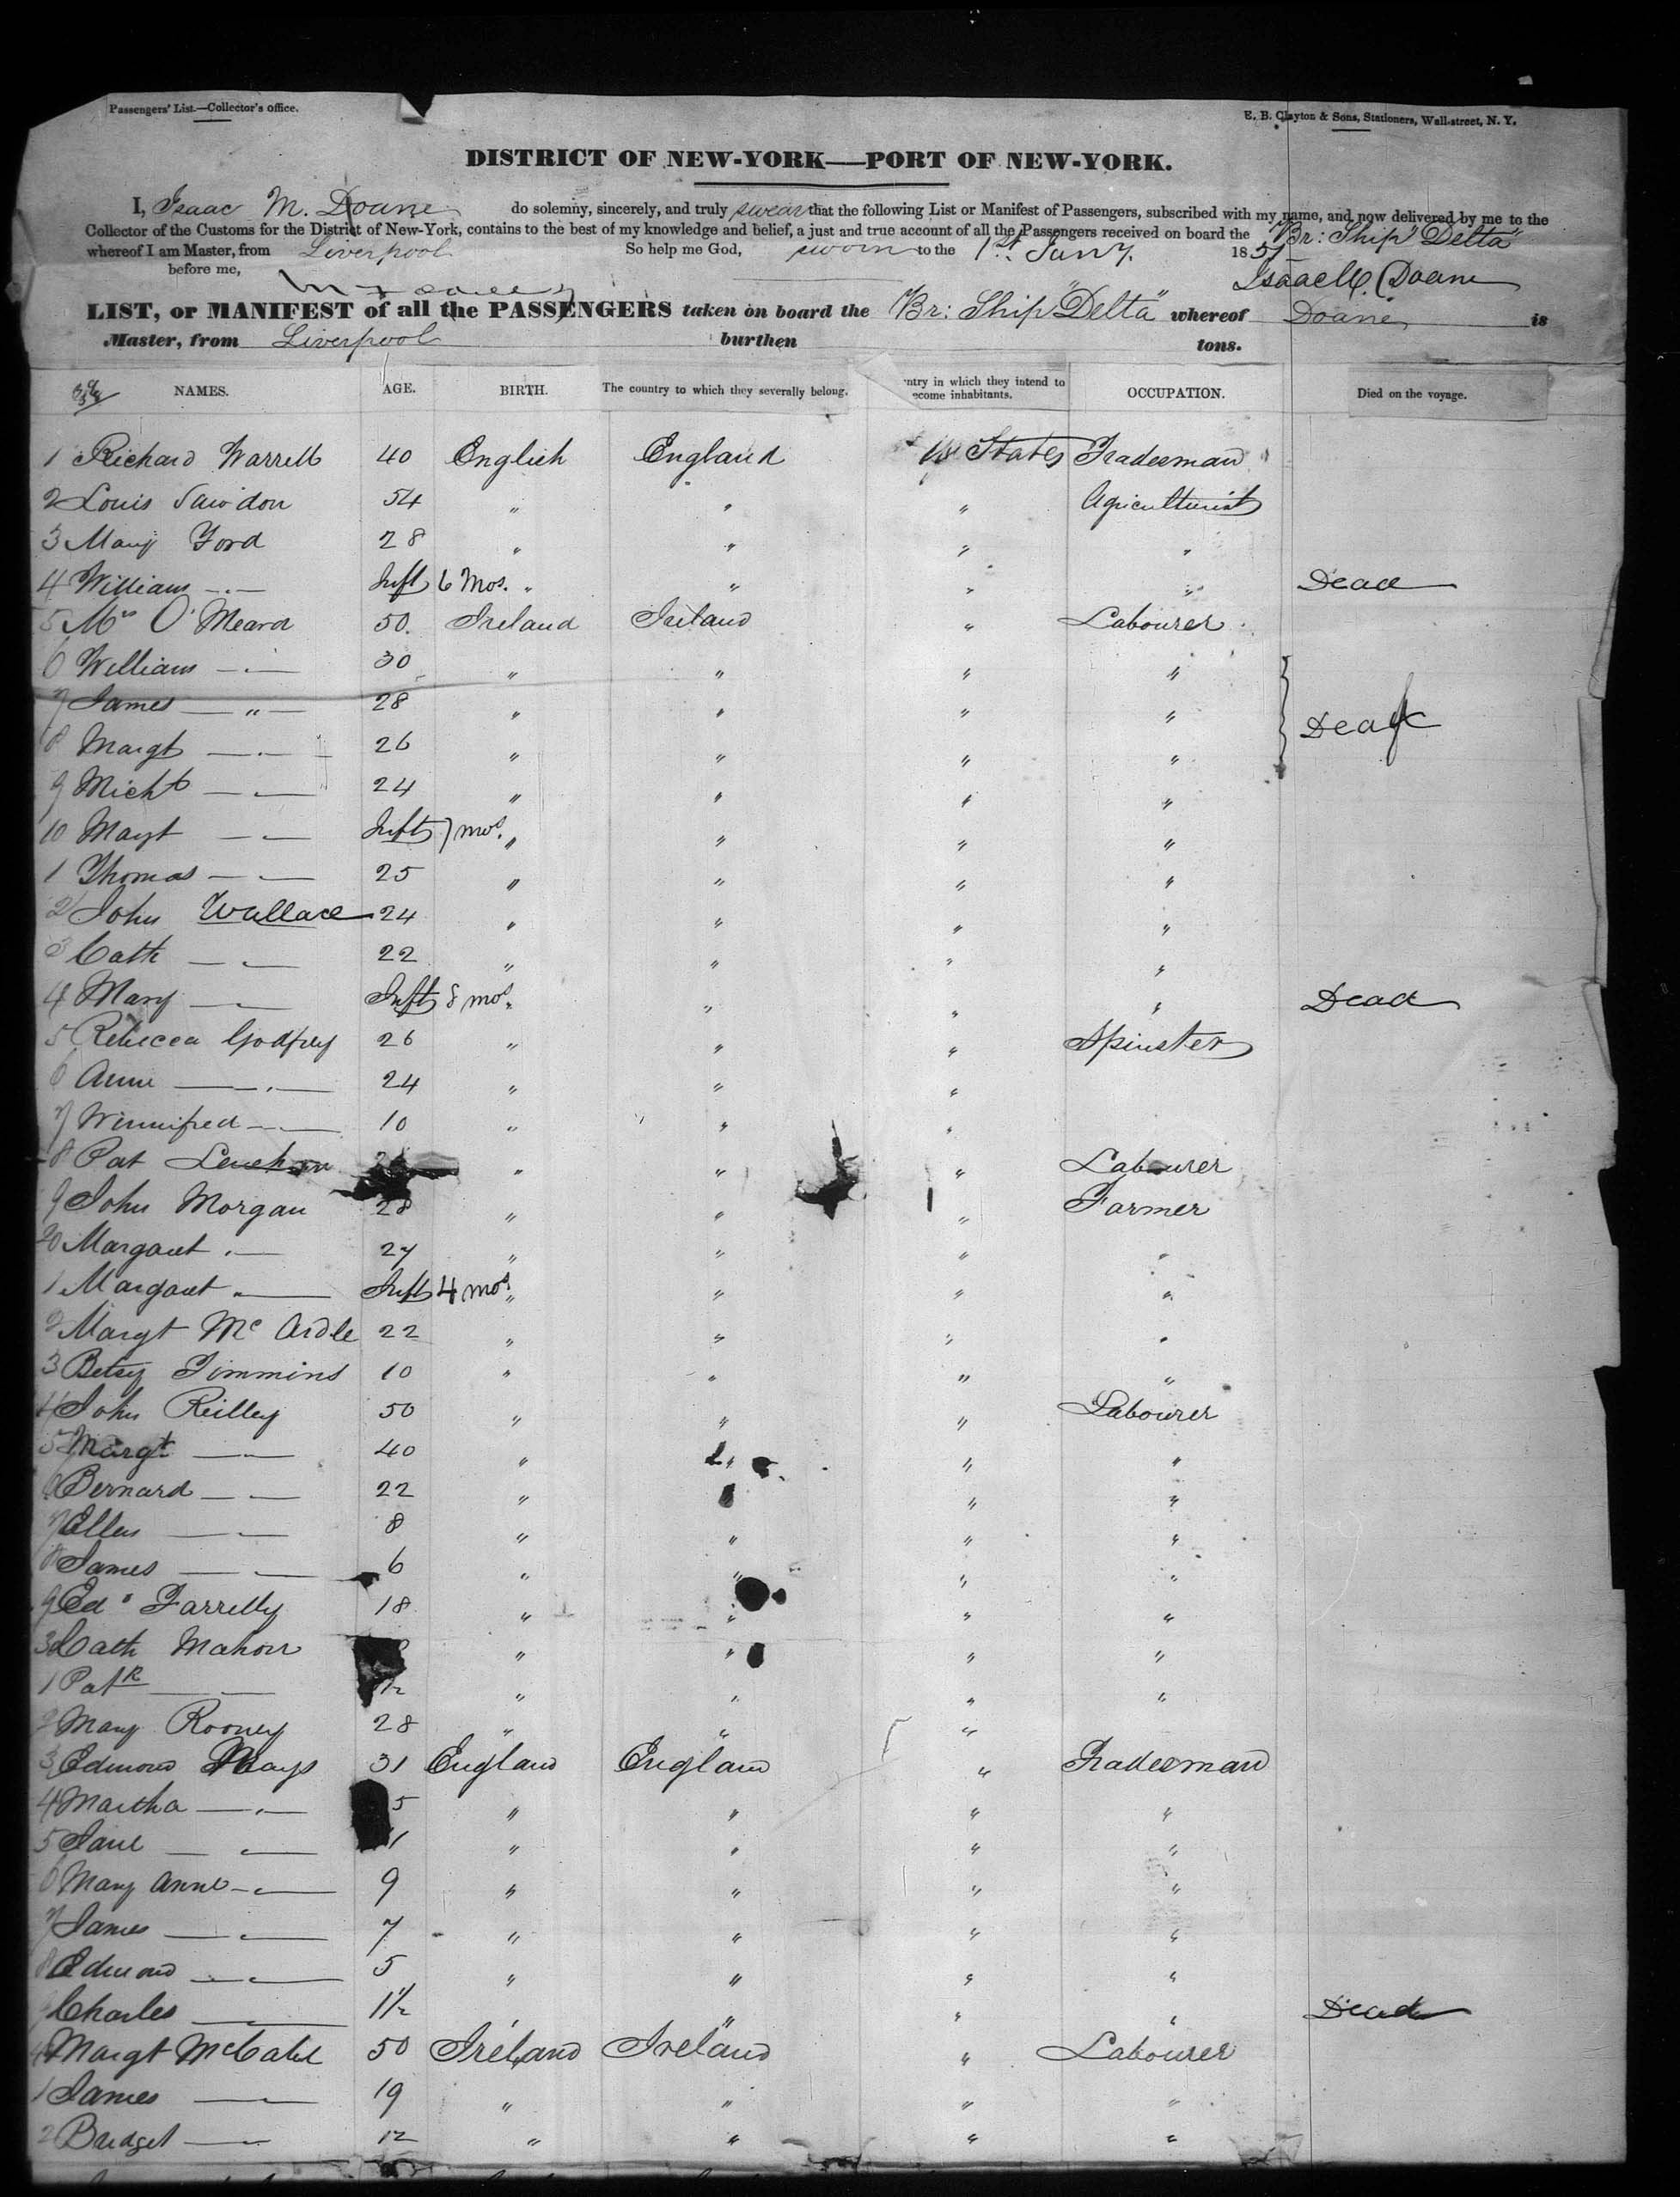 Passengers' List.—Collector's office.
E. B. Clayton & Sons, Stationers, Wall-street, N. Y.
DISTRICT OF NEW-YORK—PORT OF NEW-YORK.
I, Isaac M. Doane do solemny, sincerely, and truly swear that the following List or Manifest of Passengers, subscribed with my name, and now delivered by me to the
Collector of the Customs for the District of New-York, contains to the best of my knowledge and belief, a just and true account of all the Passengers received on board the Br: Ship "Delta"
whereof I am Master, from Liverpool So help me God, sworn to the 1st Jany. 1851
before me, Isaac M. Doane
LIST, or MANIFEST of all the PASSENGERS taken on board the Br: Ship "Delta" whereof Doane is
Master, from Liverpool burthen tons.
NAMES. AGE. BIRTH. The country to which they severally belong. ntry in which they intend to ecome inhabitants. OCCUPATION. Died on the voyage.
1 Richard Warrell 40 English England U States Tradesman
2 Louis Sawdon 54 " " " Agriculturist
3 Mary Ford 28 " " " "
4 William — " — Inft 6 Mos. " " " " Dead
5 Mrs O'Meara 50. Ireland Ireland " Labourer
6 William — " — 30 " " " "
7 James — " — 28 " " " " Dead
8 Margt — " — 26 " " " "
9 Michl — " — 24 " " " "
10 Margt — " — Inft 7 mos. " " " "
1 Thomas — " — 25 " " " "
2 John Wallace 24 " " " "
3 Cath — " — 22 " " " "
4 Mary — " — Inft 8 mos. " " " " Dead
5 Rebecca Godfrey 26 " " " Spinster
6 Anne — " — 24 " " "
7 Winnifred — " — 10 " " "
8 Pat Lenehan " " " Labourer
9 John Morgan 28 " " " Farmer
20 Margaret " — 27 " " " "
1 Margaret " — Inft 4 mos. " " " "
2 Margt Mc Ardle 22 " " " "
3 Betsy Timmins 10 " " " "
4 John Reilley 50 " " " Labourer
5 Margt — " — 40 " " " "
6 Bernard — " — 22 " " " "
7 Ellen — " — 8 " " " "
8 James — " — 6 " " " "
9 Edd Farrelly 18 " " " "
30 Cath Mahon " " " "
1 Patk — — " " " "
2 Mary Rooney 28 " " "
3 Edmond Mays 31 England England " Tradesman
4 Martha — " — 5 " " " "
5 Jane — " — 1 " " " "
6 Mary Anne — " — 9 " " " "
7 James — " — 7 " " " "
8 Edmond — " — 5 " " " "
9 Charles — " — 1½ " " " " Dead
40 Margt McCabe 50 Ireland Ireland " Labourer
1 James — " — 19 " " " "
2 Bridget — " — 12 " " " "